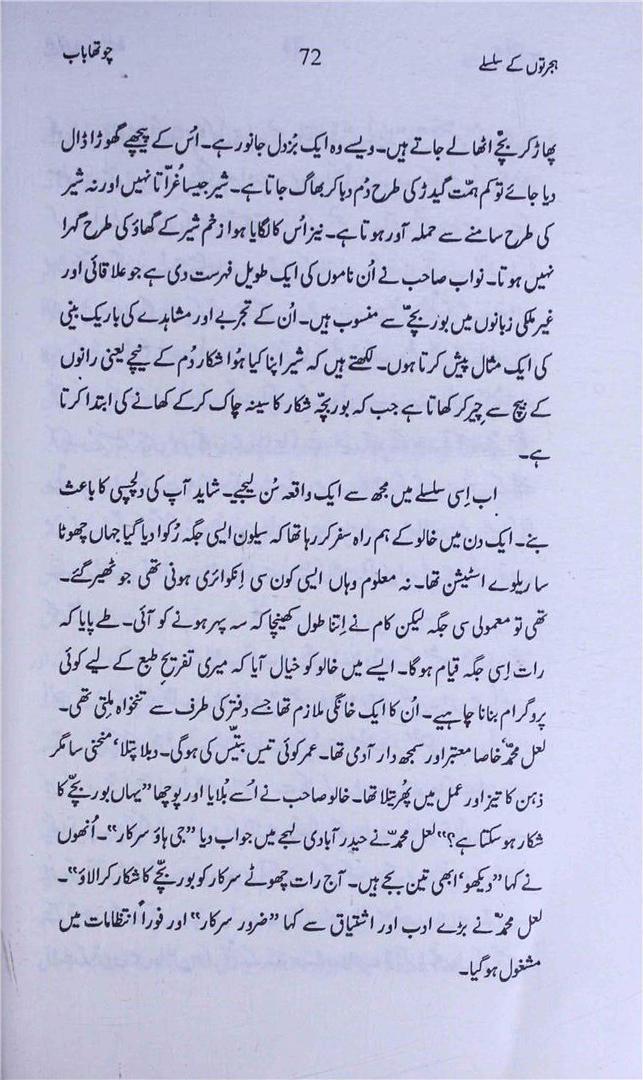 ہجرتوں کے سلسلے 72 چوتھا باب
پھاڑ کر بچّے اٹھا لے جاتے ہیں۔ ویسے وہ ایک بُزدل جانور ہے۔ اُس کے پیچھے گھوڑا ڈال
دیا جائے تو کم ہمّت گیدڑ کی طرح دُم دبا کر بھاگ جاتا ہے۔ شیر جیسا غُرّاتا نہیں اور نہ شیر
کی طرح سامنے سے حملہ آور ہوتا ہے۔ نیز اُس کا لگایا ہوا زخم شیر کے گھاؤ کی طرح گہرا
نہیں ہوتا۔ نواب صاحب نے اُن ناموں کی ایک طویل فہرست دی ہے جو علاقائی اور
غیر ملکی زبانوں میں بوربچّے سے منسوب ہیں۔ اُن کے تجربے اور مشاہدے کی باریک بینی
کی ایک مثال پیش کرتا ہوں۔ لکھتے ہیں کہ شیر اپنا کیا ہُوا شکار دُم کے نیچے یعنی رانوں
کے بیچ سے چیر کر کھاتا ہے جب کہ بوربچّہ شکار کا سینہ چاک کر کے کھانے کی ابتدا کرتا
ہے۔
اب اِسی سلسلے میں مجھ سے ایک واقعہ سُن لیجیے۔ شاید آپ کی دلچسپی کا باعث
بنے۔ ایک دن میں خالو کے ہم راہ سفر کر رہا تھا کہ سیلون ایسی جگہ رُکوا دیا گیا جہاں چھوٹا
سا ریلوے اسٹیشن تھا۔ نہ معلوم وہاں ایسی کون سی اِنکوائری ہونی تھی جو ٹھیر گئے۔
تھی تو معمولی سی جگہ لیکن کام نے اِتنا طول کھینچا کہ سہ پہر ہونے کو آئی۔ طے پایا کہ
رات اِسی جگہ قیام ہوگا۔ ایسے میں خالو کو خیال آیا کہ میری تفریحِ طبع کے لیے کوئی
پروگرام بنانا چاہیے۔ اُن کا ایک خانگی ملازم تھا جسے دفتر کی طرف سے تنخواہ مِلتی تھی۔
لعل محمّد‘ خاصا معتبر اور سمجھ دار آدمی تھا۔ عمر کوئی تیس بتیّس کی ہوگی۔ دبلا پتلا‘ منحنی سا مگر
ذہن کا تیز اور عمل میں پھُرتیلا تھا۔ خالو صاحب نے اُسے بُلایا اور پوچھا ”یہاں بوربچّے کا
شکار ہوسکتا ہے؟“ لعل محمدّ نے حیدرآبادی لہجے میں جواب دیا ”جی ہاؤ سرکار“۔ اُنھوں
نے کہا ”دیکھو‘ ابھی تین بجے ہیں۔ آج رات چھوٹے سرکار کو بوربچّے کا شکار کرا لاؤ“۔
لعل محمدّ نے بڑے ادب اور اشتیاق سے کہا ”ضرور سرکار“ اور فوراً انتظامات میں
مشغول ہوگیا۔